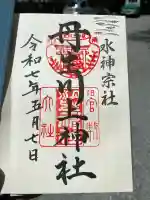 水神宗社
丹生川上神社
令和七年五月七日